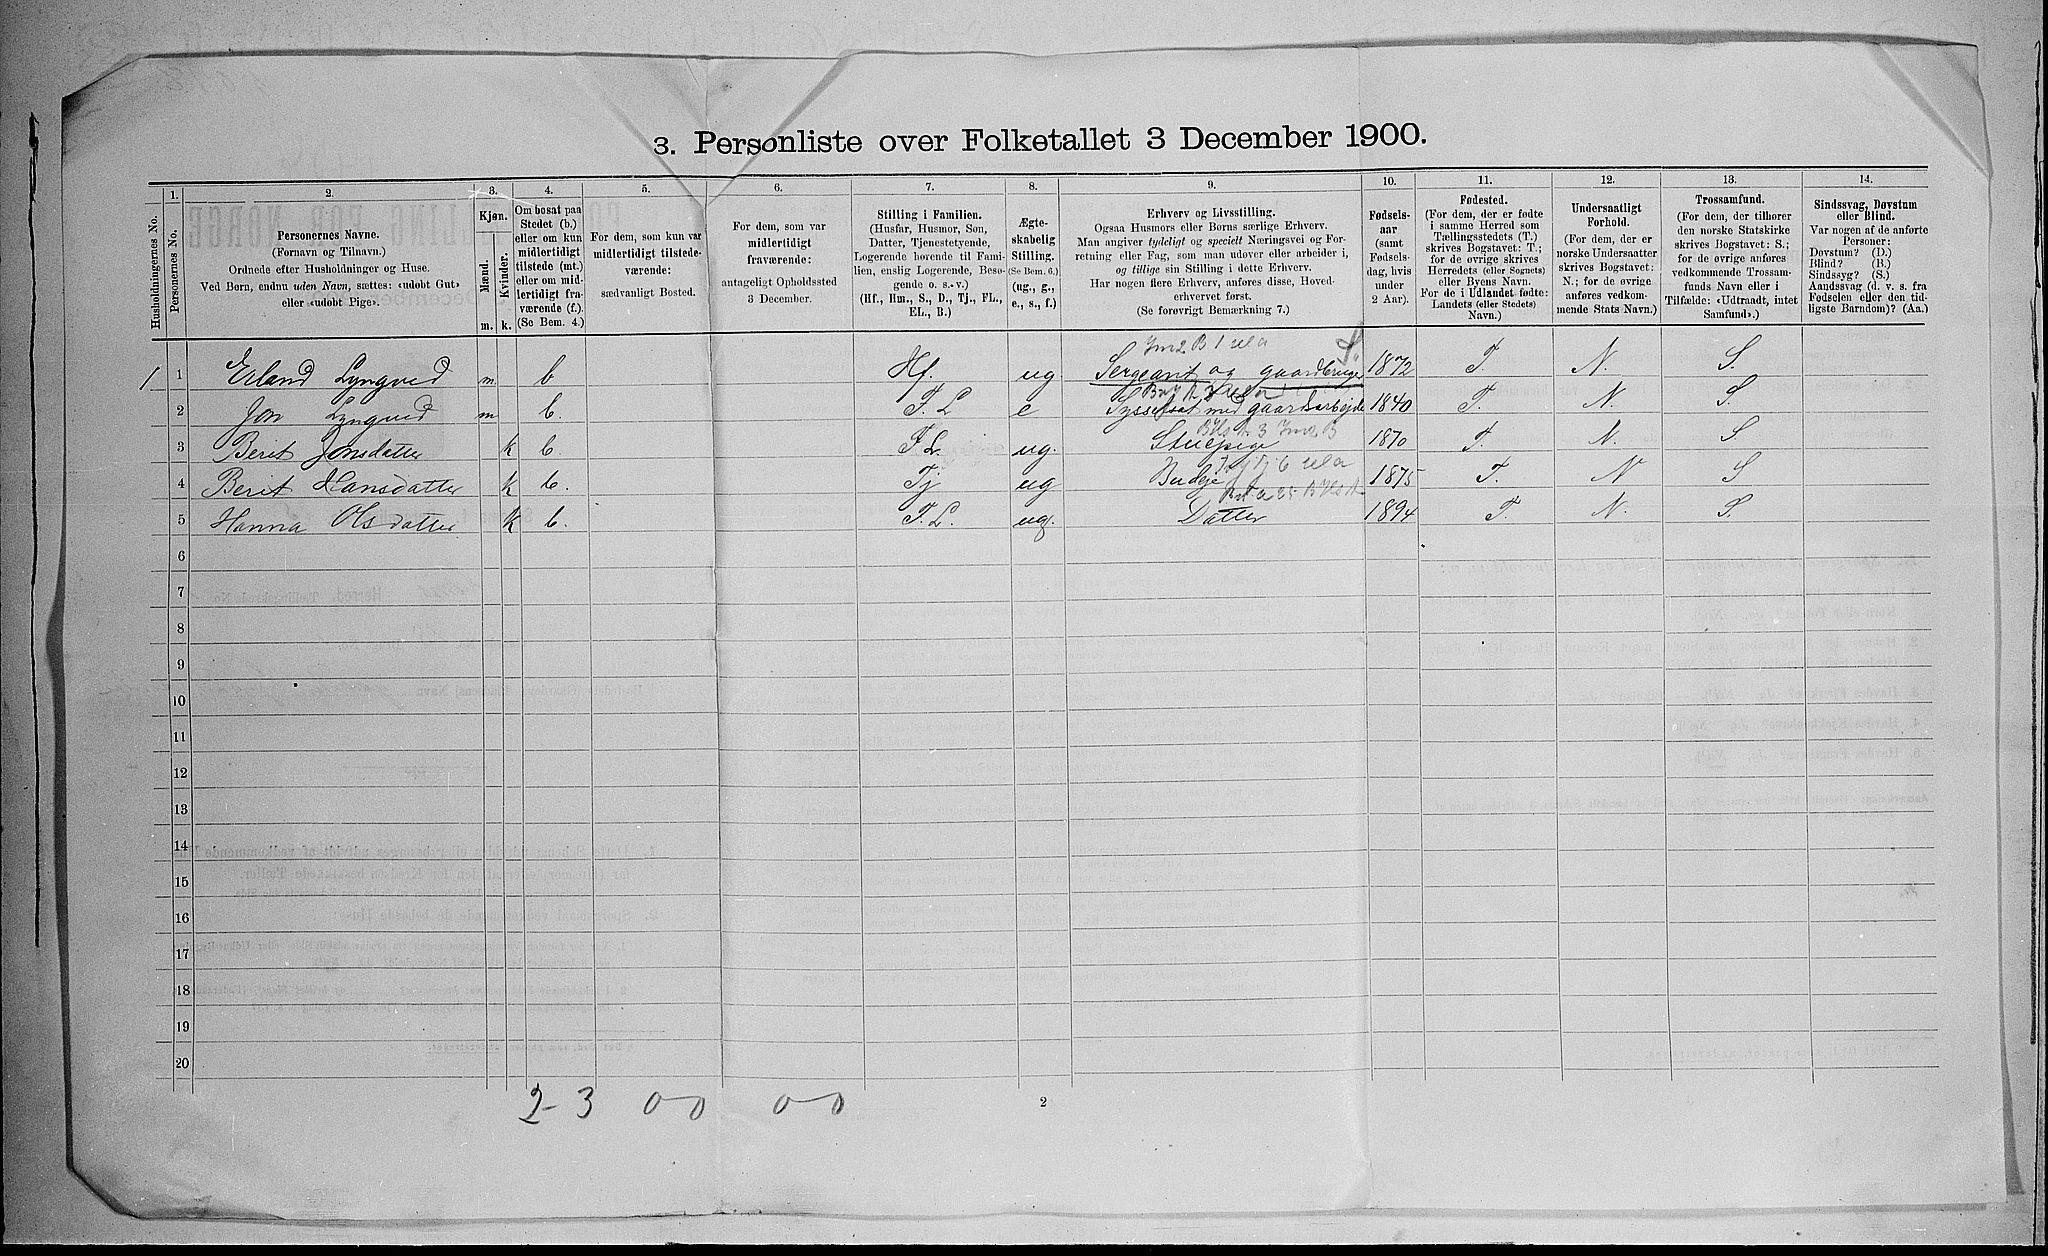 3. Personliste over Folketallet 3 December 1900.
1. 2. 3. 4. 5. 6. 7. 8. 9. 10. 11. 12. 13. 14.
Husholdningernes No.
Personernes No.
Personernes Navne.
(Fornavn og Tilnavn.)
Ordnede efter Husholdninger og Huse.
Ved Børn, endnu uden Navn, sættes: «udøbt Gut»
eller «udøbt Pige».
Kjøn.
Mænd.
Kvinder.
m. k.
Om bosat paa
Stedet (b.)
eller om kun
midlertidigt
tilstede (mt.)
eller om mid-
lertidigt fra-
værende (f.).
(Se Bem. 4.)
For dem, som kun var
midlertidigt tilstede-
værende:
sædvanligt Bosted.
For dem, som var
midlertidigt
fraværende:
antageligt Opholdssted
3 December.
Stilling i Familien.
(Husfar, Husmor, Søn,
Datter, Tjenestetyende,
Logerende hørende til Fami-
lien, enslig Logerende, Besø-
gende o. s. v.)
(Hf., Hm., S., D., Tj., FL.,
EL., B.)
Ægte-
skabelig
Stilling.
(Se Bem. 6.)
(ug., g.,
e., s., f.)
Erhverv og Livsstilling.
Ogsaa Husmors eller Børns særlige Erhverv.
Man angiver tydeligt og specielt Næringsvei og For-
retning eller Fag, som man udøver eller arbeider i,
og tillige sin Stilling i dette Erhverv.
Har nogen flere Erhverv, anføres disse, Hoved-
erhvervet først.
(Se forøvrigt Bemærkning 7.)
Fødsels-
aar
(samt
Fødsels-
dag, hvis
under
2 Aar).
Fødested.
(For dem, der er fødte
i samme Herred som
Tællingsstedets (T.)
skrives Bogstavet: T.;
for de øvrige skrives
Herredets (eller Sognets)
eller Byens Navn.
For de i Udlandet fødte:
Landets (eller Stedets)
Navn.)
Undersaatligt
Forhold.
(For dem, der er
norske Undersaatter
skrives Bogstavet:
N.; for de øvrige
anføres vedkom-
mende Stats Navn.)
Trossamfund.
(For dem, der tilhører
den norske Statskirke
skrives Bogstavet: S.;
for de øvrige anføres
vedkommende Trossam-
funds Navn eller i
Tilfælde: «Udtraadt, intet
Samfund».)
Sindssvag, Døvstum
eller Blind.
Var nogen af de anførte
Personer:
Døvstum? (D.)
Blind? (B.)
Sindssyg? (S.)
Aandssvag (d. v. s. fra
Fødselen eller den tid-
ligste Barndom)? (Aa.)
1 1 Erland Lyngved m b Hf. ug Sergeant og gaardbruger 1872 T. N. S.
2 Jon Lyngved m b. F. L e Sysselsat med gaardsarbejde 1840 T. N. S.
3 Berit Jonsdatter k b. F L. ug. Stuepige 1870 T. N. S
4 Berit Hansdatter k b. Tj ug Budeje 1875 T. N S
5 Hanna Olsdatter k b. F. L. ug. Datter 1894 T. N. S.
6
7
8
9
10
11
12
13
14
15
16
17
18
19
20
2-3 0-0 0-0
2